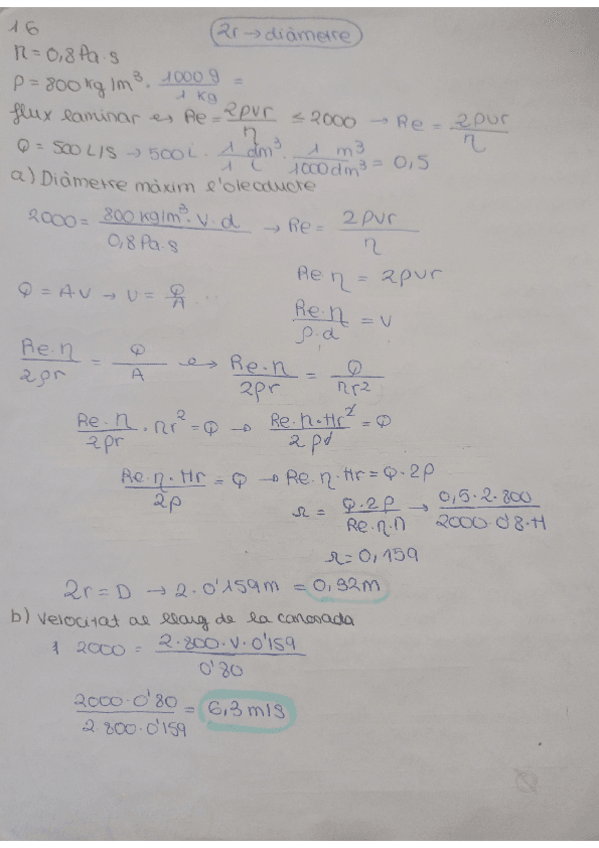 1.6
2r → diàmetre
η = 0,8 Pa·s
ρ = 800 kg/m³ · 1000 g / 1 kg =
flux laminar ↔ Re = 2ρvr / η ≤ 2000 → Re = 2ρvr / η
Q = 500 L/s → 500 L · 1 dm³ / 1 L · 1 m³ / 1000 dm³ = 0,5
a) Diàmetre màxim l'oleoducte
2000 = 800 kg/m³ · v · d / 0,8 Pa·s → Re = 2ρvr / η
Re η = 2ρvr
Q = AV → v = Q / A ...
Re·η / ρ·d = v
Re·η / 2ρr = Q / A ↔ Re·η / 2ρr = Q / πr²
Re·η / 2ρr · πr² = Q → Re·η·πr² / 2ρr = Q
Re·η·πr / 2ρ = Q → Re·η·πr = Q·2ρ
r = Q·2ρ / Re·η·π → 0,5·2·800 / 2000·0'8·π
r = 0,159
2r = D → 2·0'159m = 0,32m
b) Velocitat al llarg de la canonada
1 2000 = 2·800·v·0'159 / 0'80
2000·0'80 / 2·800·0'159 = 6,3 m/s